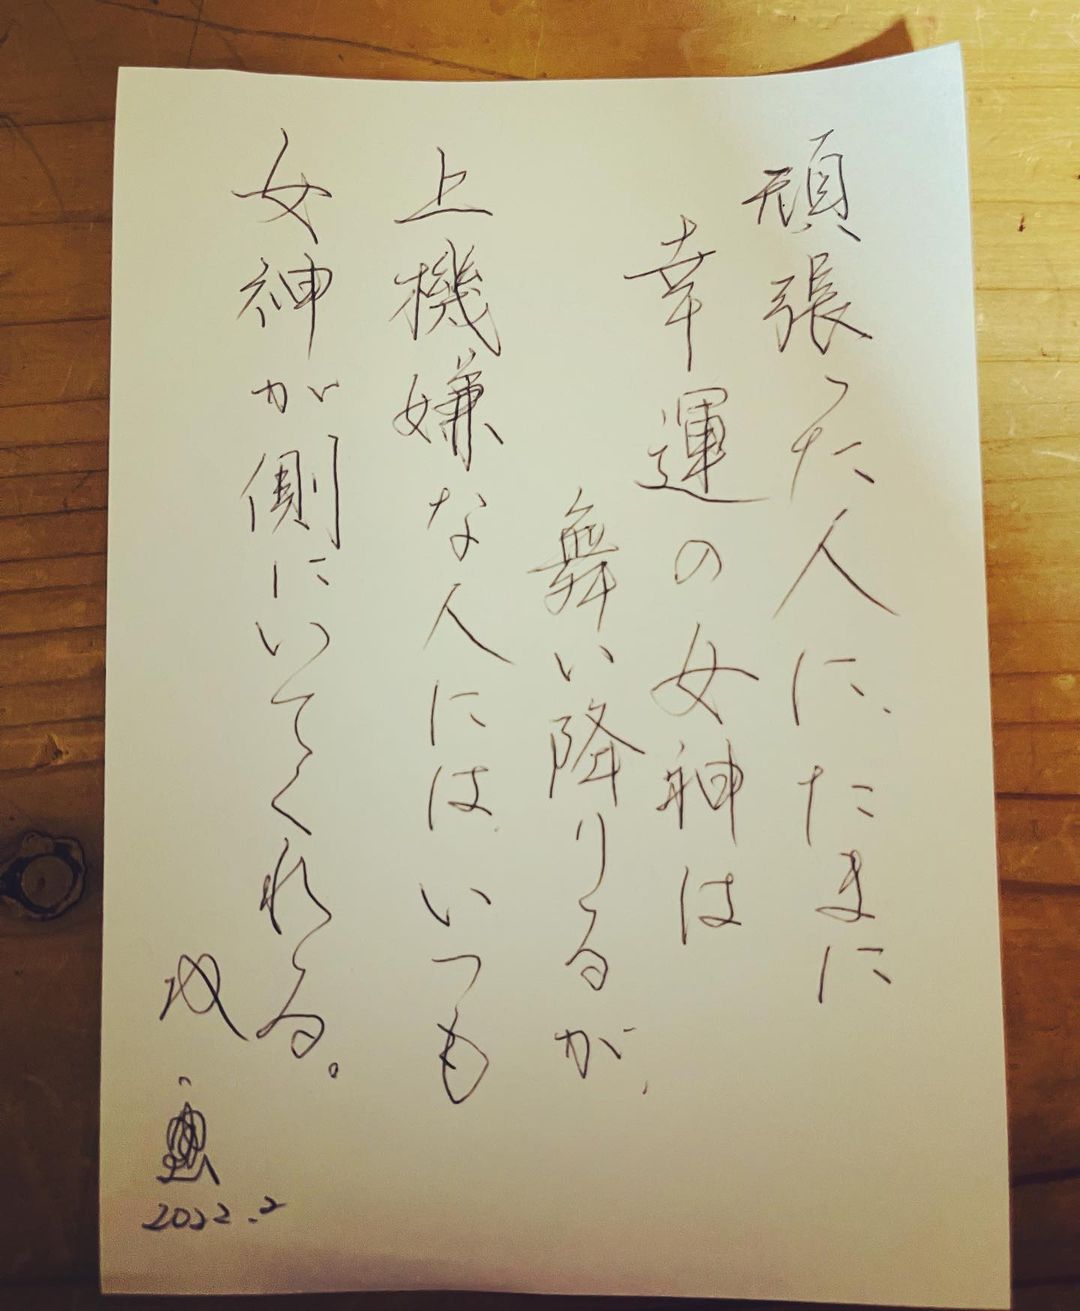 頑張った人に、たまに
幸運の女神は
舞い降りるが、
上機嫌な人には、いつも
女神が側にいてくれる。
2022.2